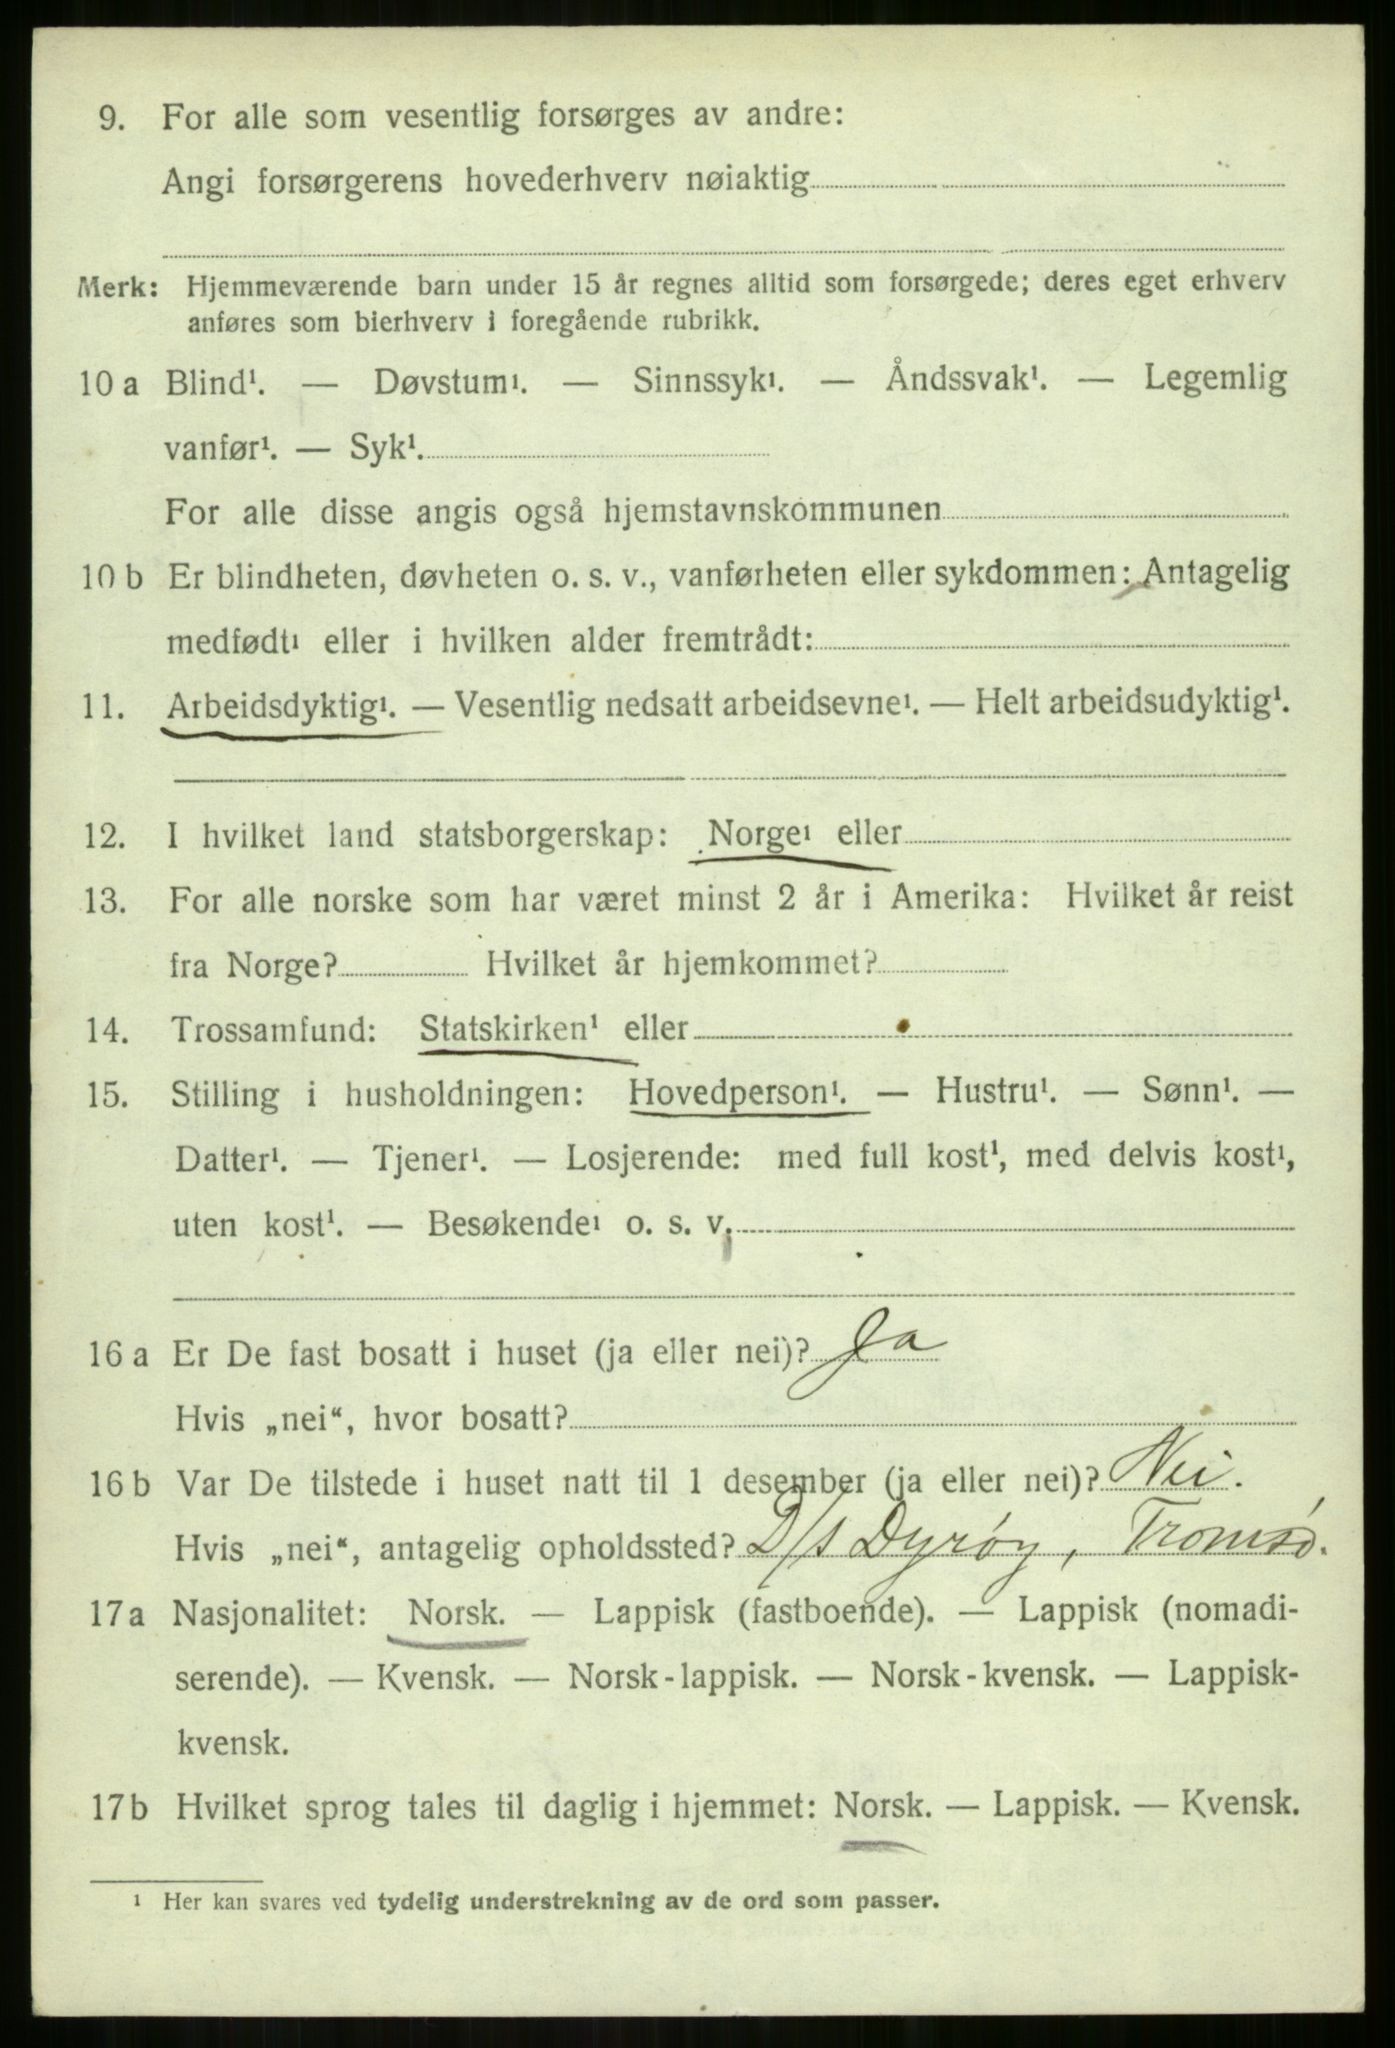 9. For alle som vesentlig forsørges av andre:
Angi forsørgerens hovederhverv nøiaktig
Merk: Hjemmeværende barn under 15 år regnes alltid som forsørgede; deres eget erhverv
anføres som bierhverv i foregående rubrikk.
10 a Blind¹. — Døvstum¹. — Sinnssyk¹. — Åndssvak¹. — Legemlig
vanfør¹. — Syk¹.
For alle disse angis også hjemstavnskommunen
10 b Er blindheten, døvheten o. s. v., vanførheten eller sykdommen: Antagelig
medfødt¹ eller i hvilken alder fremtrådt:
11. Arbeidsdyktig¹. — Vesentlig nedsatt arbeidsevne¹. — Helt arbeidsudyktig¹.
12. I hvilket land statsborgerskap: Norge¹ eller
13. For alle norske som har været minst 2 år i Amerika: Hvilket år reist
fra Norge? Hvilket år hjemkommet?
14. Trossamfund: Statskirken¹ eller
15. Stilling i husholdningen: Hovedperson¹. — Hustru¹. — Sønn¹. —
Datter¹. — Tjener¹. — Losjerende: med full kost¹, med delvis kost¹,
uten kost¹. — Besøkende¹ o. s. v.
16 a Er De fast bosatt i huset (ja eller nei)? Ja
Hvis „nei“, hvor bosatt?
16 b Var De tilstede i huset natt til 1 desember (ja eller nei)? Nei.
Hvis „nei“, antagelig opholdssted? D/s Dyrøy, Tromsø.
17 a Nasjonalitet: Norsk. — Lappisk (fastboende). — Lappisk (nomadi-
serende). — Kvensk. — Norsk-lappisk. — Norsk-kvensk. — Lappisk-
kvensk.
17 b Hvilket sprog tales til daglig i hjemmet: Norsk. — Lappisk. — Kvensk.
¹ Her kan svares ved tydelig understrekning av de ord som passer.